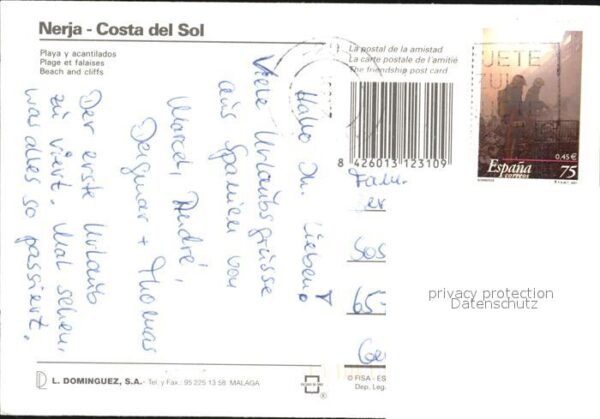 Nerja - Costa del Sol
Playa y acantilados
Plage et falaises
Beach and cliffs
La postal de la amistad
La carte postale de l'amitié
The friendship post card
8 426013 123109
0,45 €
España
correos
75
Hallo Ihr Lieben!
Viele Urlaubsgrüsse
aus Spanien von
Marcel, André,
Dagmar + Thomas
Der erste Urlaub
zu viert. Mal sehen,
was alles so passiert.
Fam.
Sos
65-
privacy protection
Datenschutz
L. DOMINGUEZ, S.A. - Tel. y Fax.: 95 225 13 58 MALAGA
© FISA - ES
Dep. Leg.